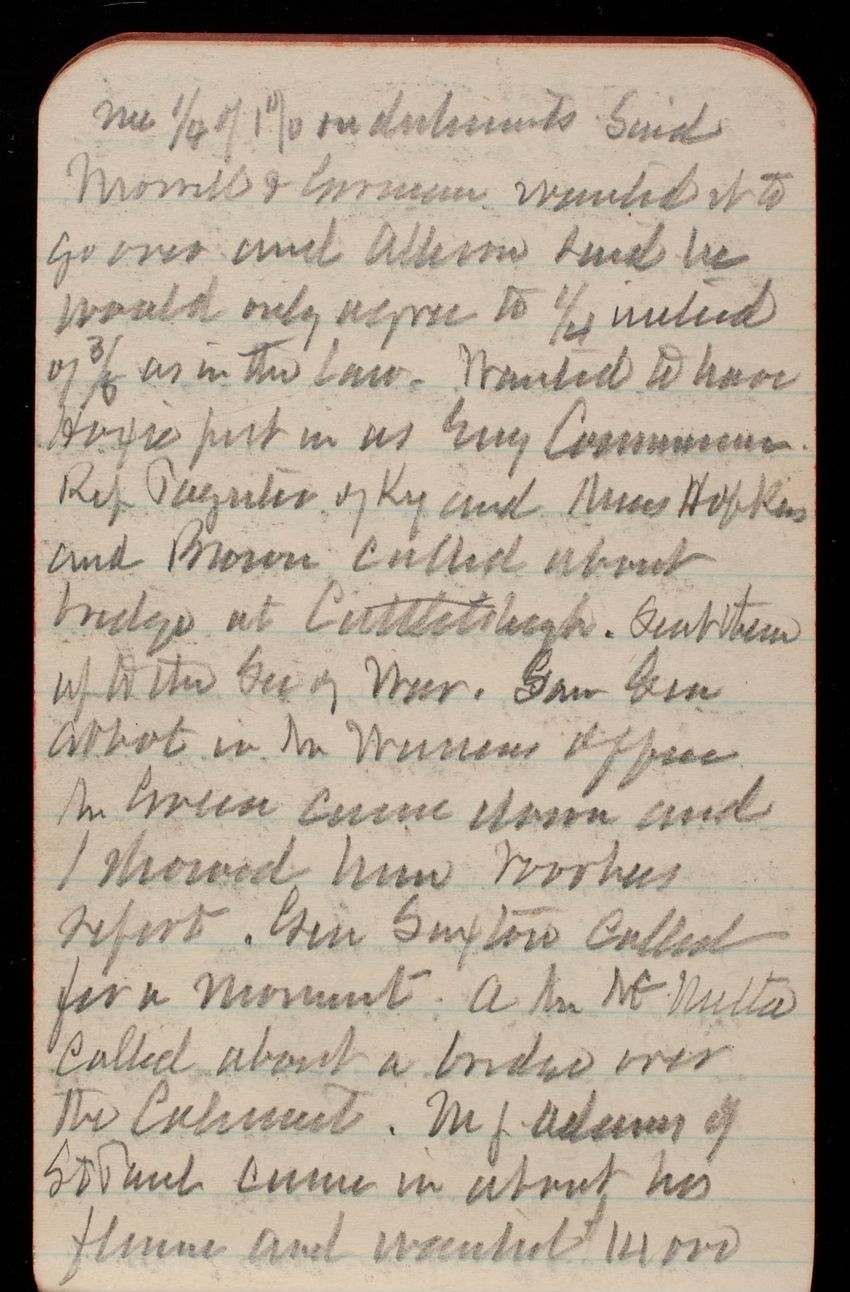 me 1/4 of 1% on detriments Said
Morrill & Gorman wanted it to
go over and Allison said he
would only agree to 1/4 instead
of 3/8 as in the law. Wanted to have
Hoxie put in as Eng Commissioner.
Rep Paynter of Ky and Mess Hopkins
and Brown called about
bridge at Cattletsburgh. Sent them
up to the Sec of War. Saw Gen
Abbot in Mr Wilsons office
Mr Green came down and
I showed him Voorhees
report. Gen Saxton called
for a moment. A Mr McNulta
called about a bridge over
the Calumet. M J Adams of
St Paul came in about his
flume and wanted $14000